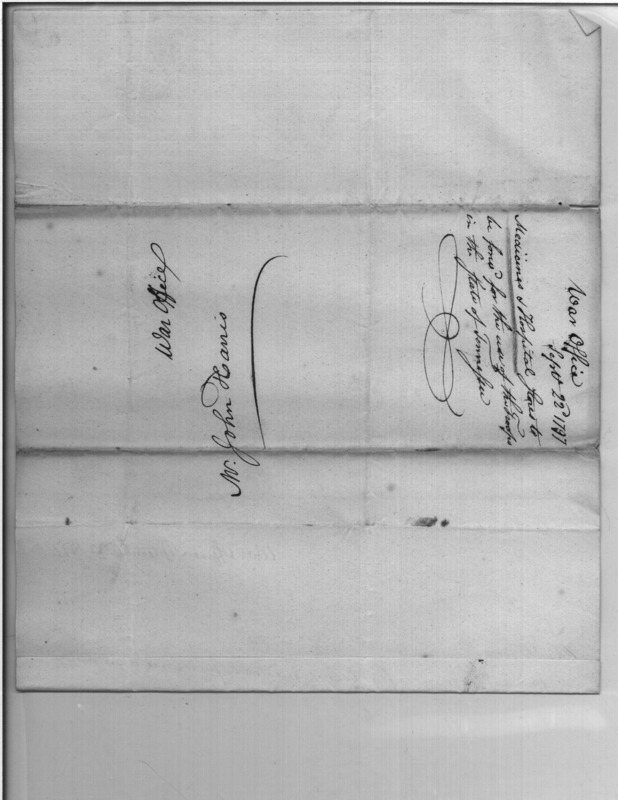 War Office
Sept 22d 1797
Medicines & Hospital stores to
be forwd for the use of the troops
in the state of Tennessee
War Office
Mr. John Harris